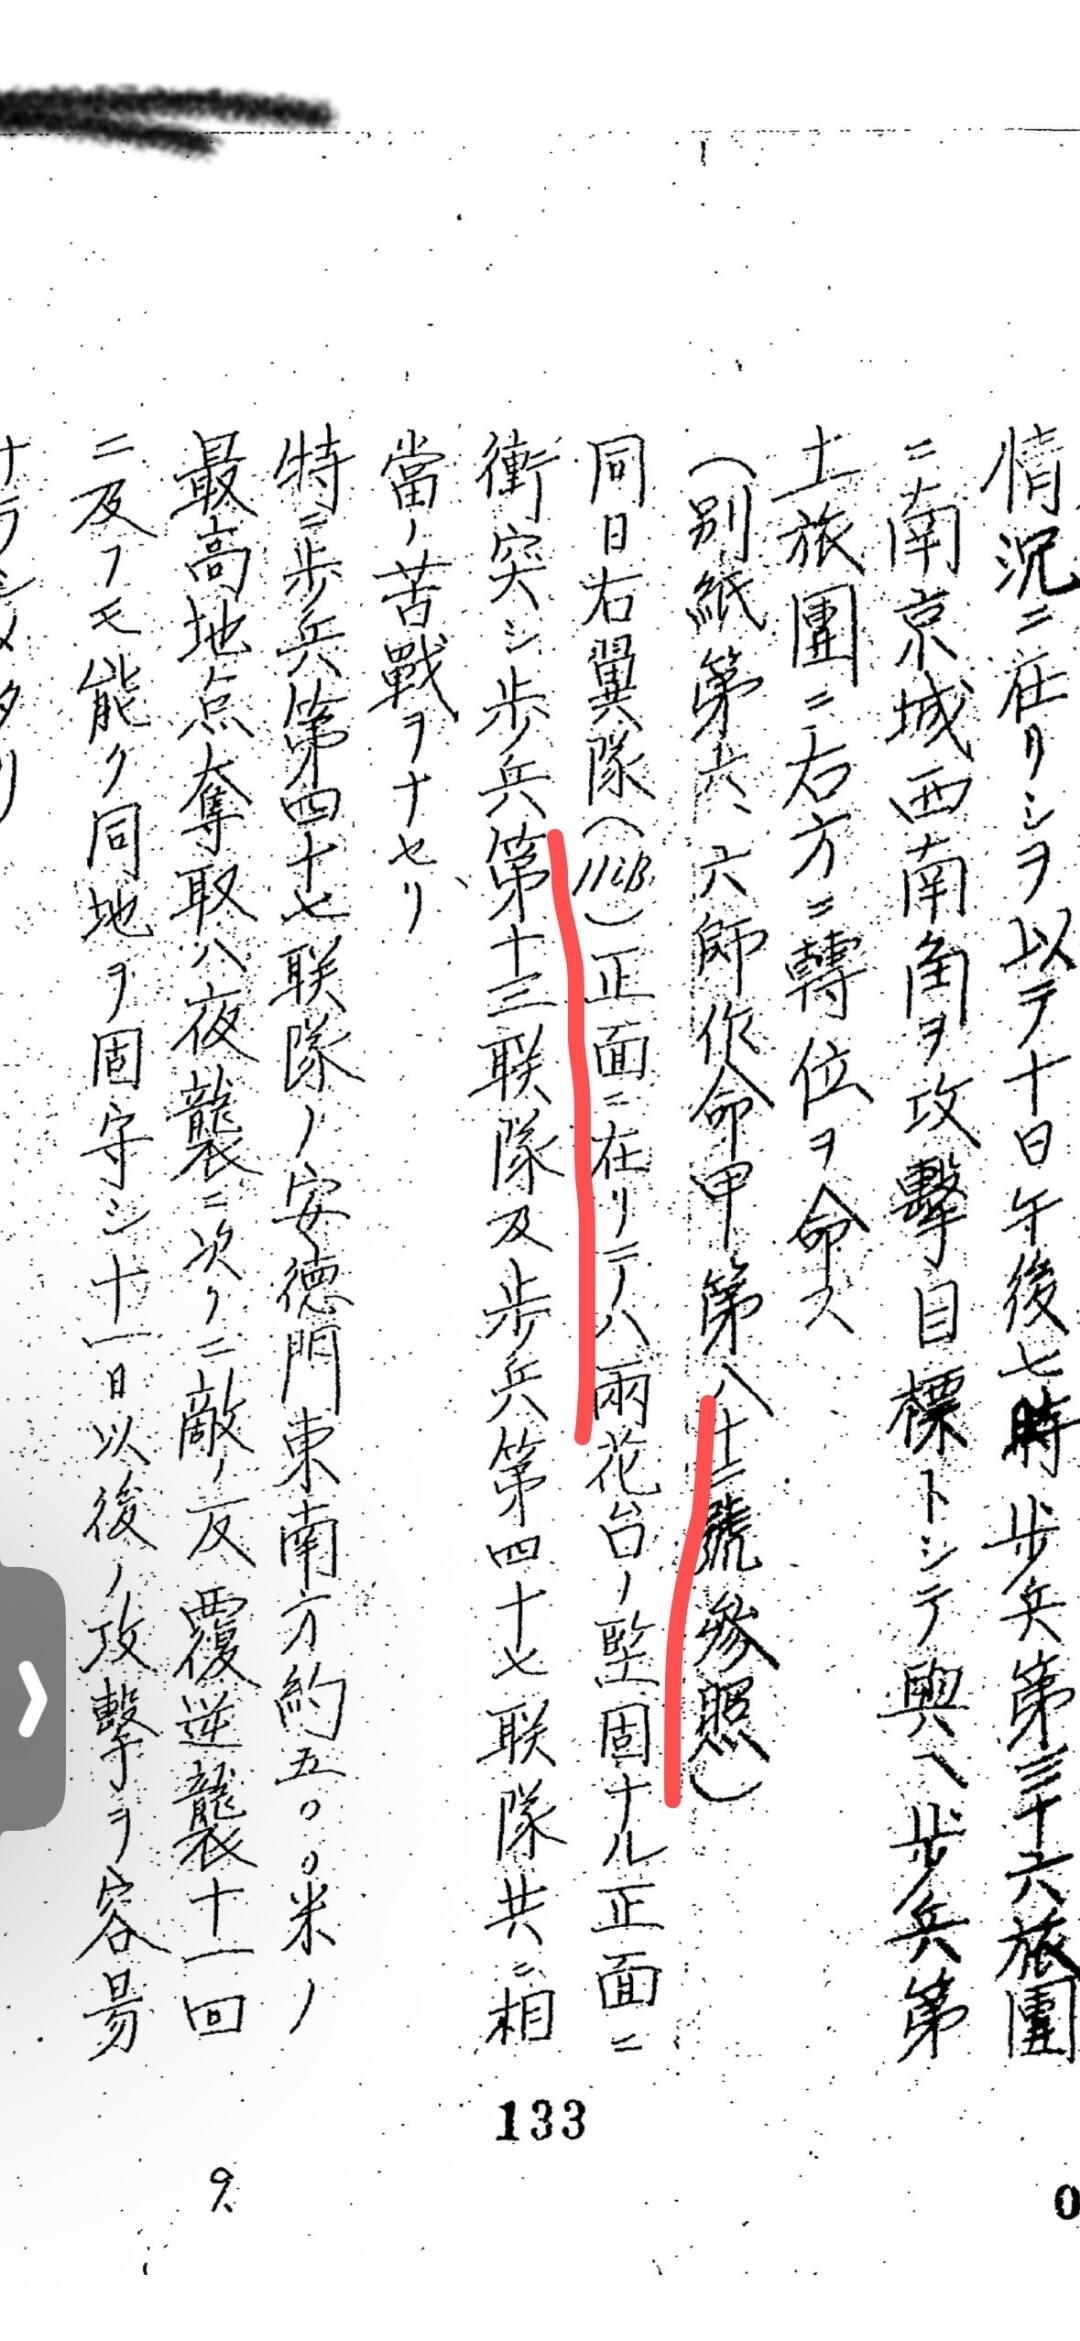 情況ニ在リシヲ以テ十日午後七時歩兵第三十六旅團
ニ南京城西南角ヲ攻撃目標トシテ與ヘ歩兵第
十一旅團ニ右方ニ轉位ヲ命ス
(別紙第六、六師作命甲第八十二號参照)
同日右翼隊(11iB)正面ニ在リテハ雨花台ノ堅固ナル正面ニ
衝突シ歩兵第十三联隊及歩兵第四十七联隊共ニ相
當ノ苦戰ヲナセリ、
特ニ歩兵第四十七联隊ノ安徳門東南方約五〇〇米ノ
最高地点奪取ハ夜襲ニ次クニ敵ノ反覆逆襲十一回
ニ及フモ能ク同地ヲ固守シ十一日以後ノ攻撃ヲ容易
ナラシメタリ
133
9.
0